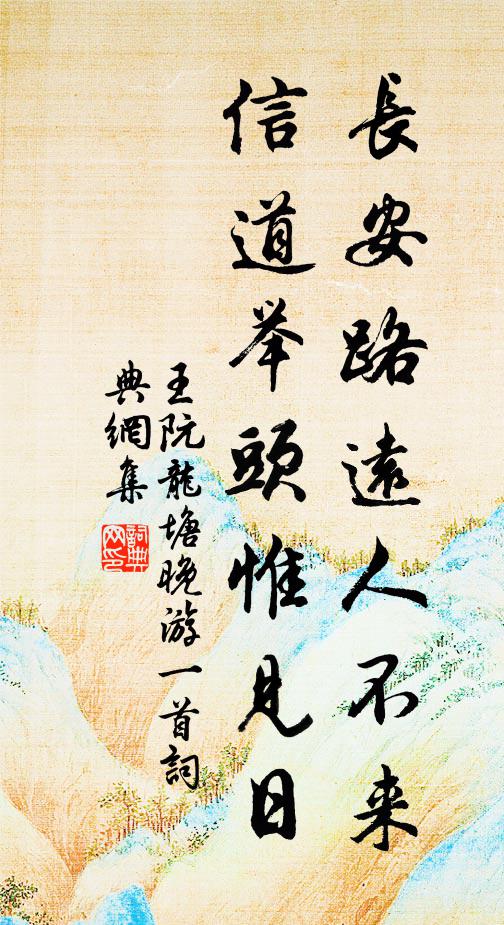 長安路遠人不来
信道举頭惟見日
王阮龍塘晚游一首詞
典網集
詞典
网印